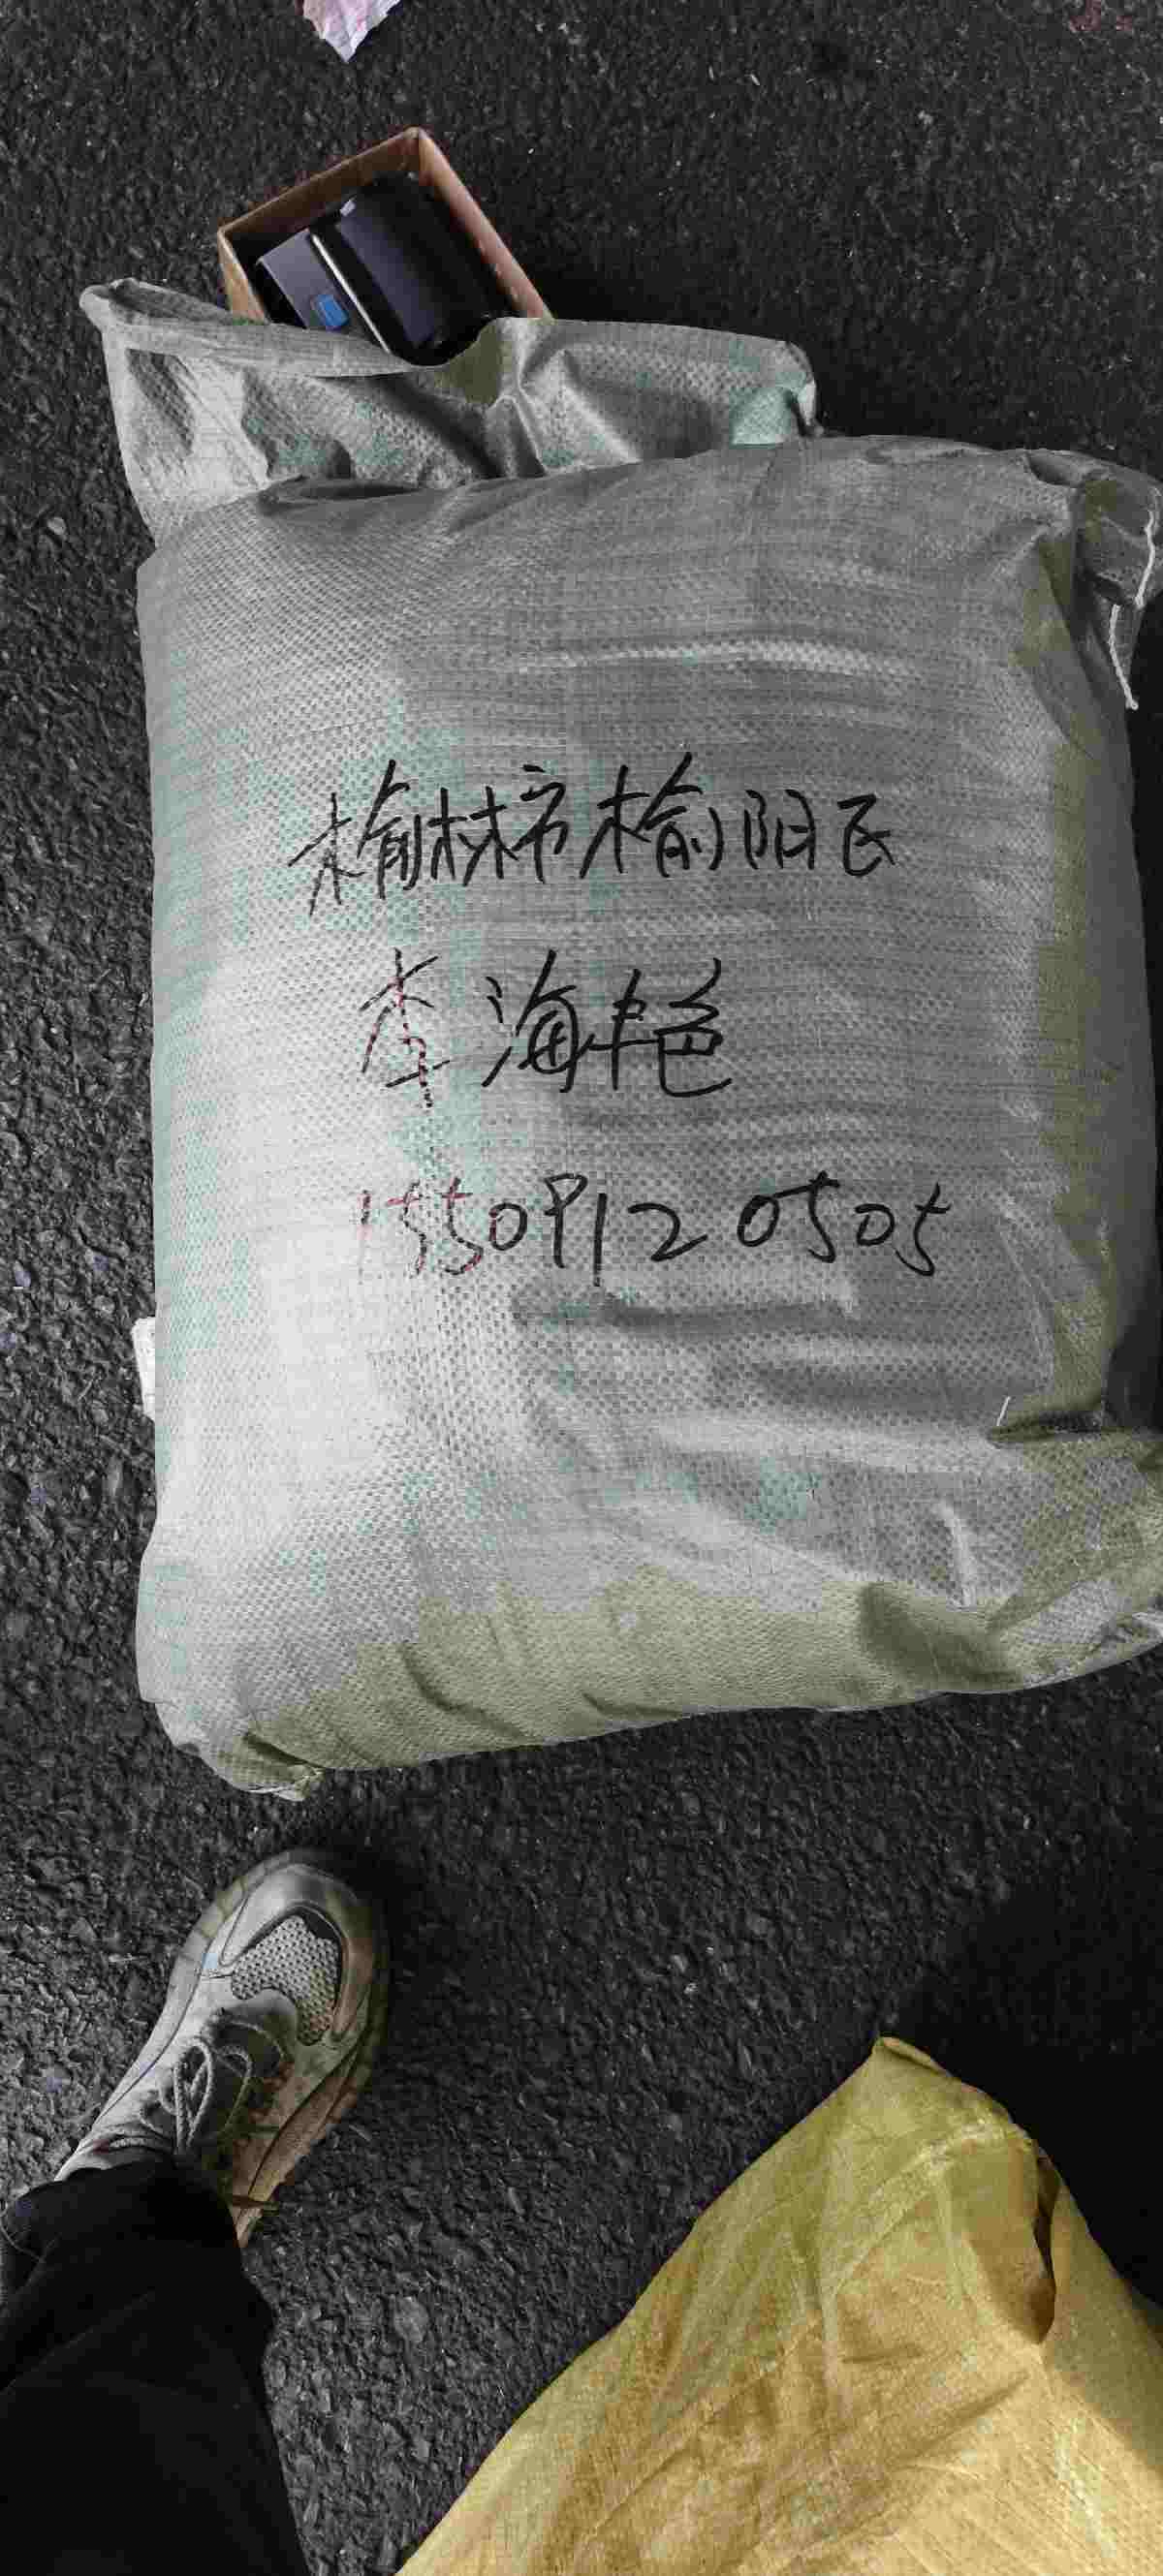 榆林市榆阳区
李海艳
15509120505